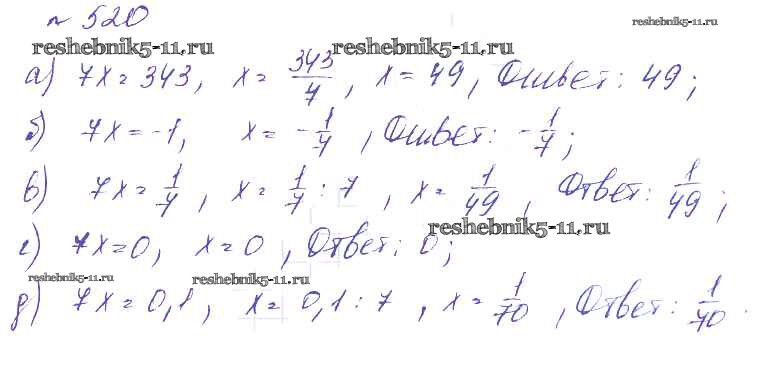 № 520
reshebnik5-11.ru
reshebnik5-11.ru reshebnik5-11.ru
а) 7x = 343, x = 343/7, x = 49, Ответ: 49;
б) 7x = -1, x = -1/7, Ответ: -1/7;
в) 7x = 1/7, x = 1/7 : 7, x = 1/49, Ответ: 1/49;
reshebnik5-11.ru
г) 7x = 0, x = 0, Ответ: 0;
reshebnik5-11.ru reshebnik5-11.ru
д) 7x = 0,1, x = 0,1 : 7, x = 1/70, Ответ: 1/70.